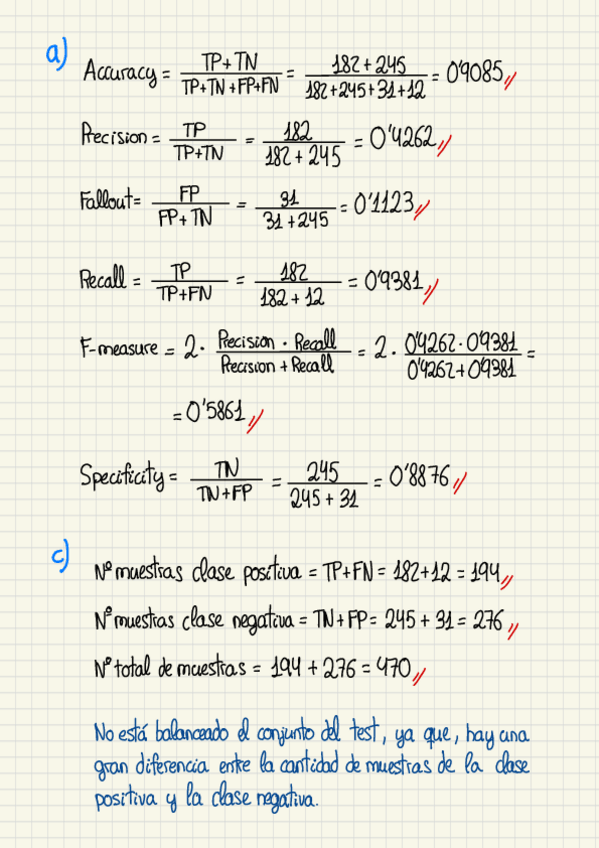 a)
Accuracy = TP+TN / TP+TN+FP+FN = 182+245 / 182+245+31+12 = 0'9085
Precision = TP / TP+TN = 182 / 182+245 = 0'4262
Fallout = FP / FP+TN = 31 / 31+245 = 0'1123
Recall = TP / TP+FN = 182 / 182+12 = 0'9381
F-measure = 2 · Precision · Recall / Precision + Recall = 2 · 0'4262 · 0'9381 / 0'4262+0'9381 =
= 0'5861
Specificity = TN / TN+FP = 245 / 245+31 = 0'8876
c)
Nº muestras clase positiva = TP+FN = 182+12 = 194
Nº muestras clase negativa = TN+FP = 245 + 31 = 276
Nº total de muestras = 194 + 276 = 470
No está balanceado el conjunto del test, ya que, hay una
gran diferencia entre la cantidad de muestras de la clase
positiva y la clase negativa.